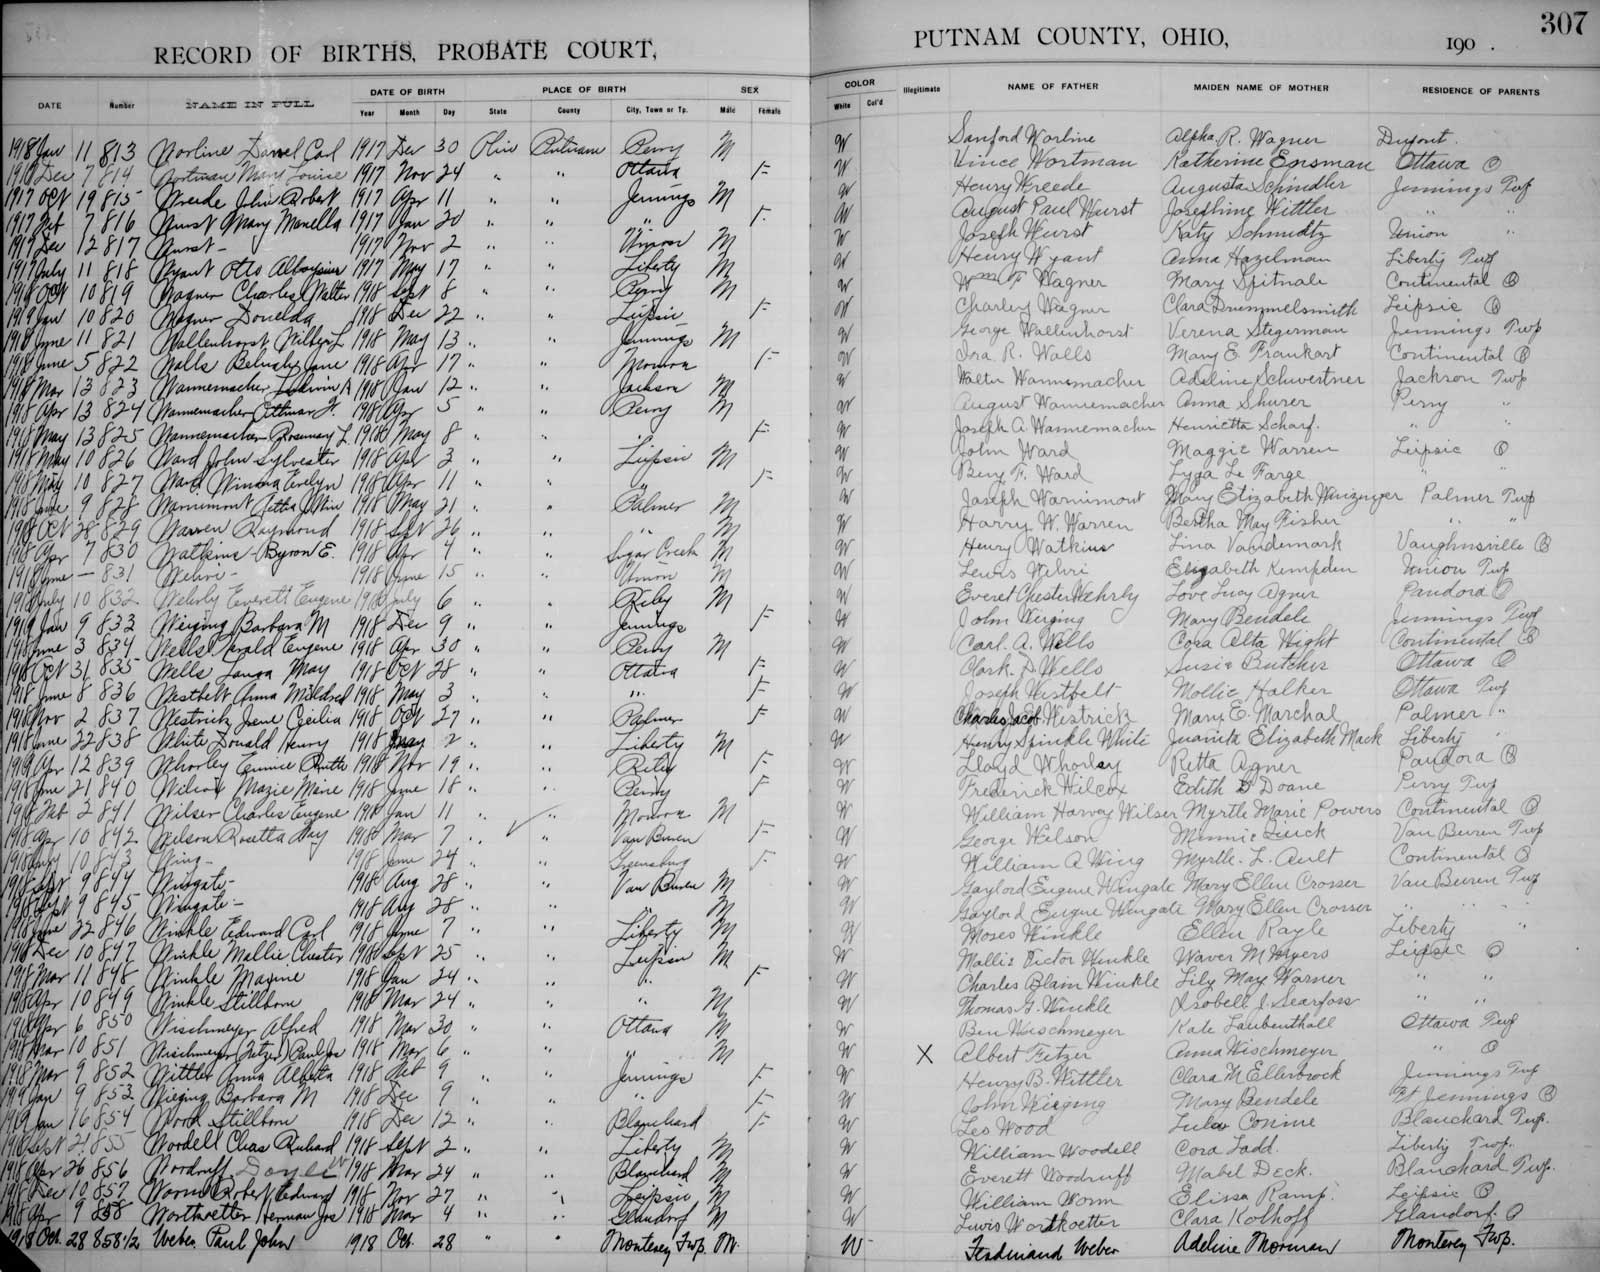 RECORD OF BIRTHS, PROBATE COURT, PUTNAM COUNTY, OHIO, 190 . 307
DATE Number NAME IN FULL DATE OF BIRTH Year Month Day PLACE OF BIRTH State County City, Town or Tp. SEX Male Female COLOR White Col'd Illegitimate NAME OF FATHER MAIDEN NAME OF MOTHER RESIDENCE OF PARENTS
1918 Jan 11 813 Worline Carl 1917 Dec 30 Ohio Putnam Perry M W Sanford Worline Alpha R. Wagner Dupont
Dec 7 814 Wortman Mary Louise 1917 Nov 24 " " Ottawa F W Vince Wortman Katherine Ottawa
1917 Oct 19 815 Wreede John Robert 1917 Apr 11 " " Jennings M W Henry Wreede Augusta Schindler Jennings Twp
1917 Feb 7 816 Wurst Mary 1917 Jan 20 " " " F W August Paul Wurst Josephine Wittler " "
Dec 12 817 Wurst - 1917 Nov 2 " " Union M W Joseph Wurst Katy Union "
1917 July 11 818 Wyant Otto 1917 May 17 " " Liberty M W Henry Wyant Anna Hazelman Liberty Twp
1918 Oct 10 819 Wagner Charles Walter 1918 Sept 8 " " Perry M W Wm F Wagner Mary Spitnale Continental
1919 Jan 10 820 Wagner Donelda 1918 Dec 22 " " Leipsic F W Charley Wagner Clara Drummelsmith Leipsic
1918 June 11 821 Wallenhorst L 1918 May 13 " " Jennings M W George Wallenhorst Verena Stegerman Jennings Twp
1918 June 5 822 Walls Jane 1918 Apr 17 " " Monroe F W Ira R. Walls Mary E Frankart Continental
1918 Mar 13 823 Wannemacher A 1918 Jan 12 " " Jackson M W Walter Wannemacher Adeline Schwertner Jackson Twp
1918 Apr 13 824 Wannemacher Ottmar F. 1918 Apr 5 " " Perry M W August Wannemacher Anna Shurer Perry "
1918 May 13 825 Wannemacher Rosemary L 1918 May 8 " " " F W Joseph A. Wannemacher Henrietta Scharf. " "
1918 May 10 826 Ward John Sylvester 1918 Apr 3 " " Leipsic M W John Ward Maggie Warren Leipsic
1918 May 10 827 Ward Winona Evelyn 1918 Apr 11 " " " F W Benj F. Ward Lyda Le Farge "
1918 June 9 828 Warnimont 1918 May 21 " " Palmer M W Joseph Warnimont Mary Elizabeth Palmer Twp
1918 Oct 28 829 Warren Raymond 1918 Sept 26 " " " M W Harry W. Warren Bertha May Fisher " "
1918 Apr 7 830 Watkins Byron E. 1918 Apr 4 " " Sugar Creek M W Henry Watkins Lina Vandemark Vaughnsville
1918 June — 831 Wehri - 1918 June 15 " " Union M W Lewis Wehri Elizabeth Kempden Union Twp
1918 July 10 832 Wehrly Everett Eugene 1918 July 6 " " Riley M W Everet Chester Wehrly Love Lucy Agner Pandora
1919 Jan 9 833 Wieging Barbara M 1918 Dec 9 " " Jennings F W John Wieging Mary Bendele Jennings Twp
1918 June 3 834 Wells Harold Eugene 1918 Apr 30 " " Perry M W Carl. A. Wells Cora Alta Hight Continental
1918 Oct 31 835 Wells Laura May 1918 Oct 28 " " Ottawa F W Clark. D Wells Susie Butcher Ottawa
1918 June 8 836 Westbelt Anna Mildred 1918 May 3 " " " F W Joseph Westbelt Mollie Halker Ottawa Twp
1918 Nov 2 837 Westrick Irene Cecilia 1918 Oct 27 " " Palmer F W Charles Jacob Westrick Mary E. Marchal Palmer "
1918 June 22 838 White Donald Henry 1918 May 2 " " Liberty M W Henry Spinkle White Juanita Elizabeth Mack Liberty "
1919 Apr 12 839 Whorley Eunice Ruth 1918 Nov 19 " " Riley F W Lloyd Whorley Retta Agner Pandora
1918 June 21 840 Wilcox Mazie Marie 1918 June 18 " " Perry F W Frederick Wilcox Edith Doane Perry Twp
1918 Feb 2 841 Wilser Charles Eugene 1918 Jan 11 " " Monroe M W William Harvey Wilser Myrtle Marie Powers Continental
1918 Apr 10 842 Wilson Rosetta May 1918 Mar 7 " " Van Buren F W George Wilson Minnie Van Buren Twp
1918 10 843 Wing - 1918 June 24 " Greensburg F W William A Wing Myrtle. L. Ault Continental
1918 Sept 9 844 Wingate - 1918 Aug 28 " " Van Buren M W Gaylord Eugene Wingate Mary Ellen Crosser Van Buren Twp
1918 Sept 9 845 Wingate - 1918 Aug 28 " " " M W Gaylord Eugene Wingate Mary Ellen Crosser " "
1918 June 22 846 Winkle Edward Carl 1918 June 7 " " Liberty M W Moses Winkle Ellen Rayle Liberty "
1918 Dec 10 847 Winkle Mallie Chester 1918 Sept 25 " " Leipsic M W Mallie Victor Winkle Waver M Myers Leipsic
1918 Mar 11 848 Winkle Maxine 1918 Jan 24 " " " F W Charles Blain Winkle Lily May Warner " "
1918 Apr 10 849 Winkle Stillborn 1918 Mar 24 " " " M W Thomas G. Winkle Isobell J. Searfoss " "
1918 Apr 6 850 Wischmeyer Alfred 1918 Mar 30 " " Ottawa M W Ben Wischmeyer Kate Laubenthall Ottawa Twp
1918 Mar 10 851 Wischmeyer (Fetzer) Paul Jos 1918 Mar 6 " " " M W X Albert Fetzer Anna Wischmeyer "
1918 Mar 9 852 Wittler Anna Alberta 1918 Feb 9 " " Jennings F W Henry B. Wittler Clara M Ellerbrock Jennings Twp
1919 Jan 9 853 Wieging Barbara M 1918 Dec 9 " " " F W John Wieging Mary Bendele Ft Jennings
1919 Jan 16 854 Wood Stillborn 1918 Dec 12 " " Blanchard F W Leo Wood Lula Conine Blanchard Twp.
1918 Sept 21 855 Woodell Chas Richard 1918 Sept 2 " " Liberty M W William Woodell Cora Ladd. Liberty Twp.
1918 Apr 26 856 Woodruff 1918 Mar 24 " " Blanchard M W Everett Woodruff Mabel Deck. Blanchard Twp.
1918 Dec 10 857 Worm Robert Edward 1918 Nov 27 " " Leipsic M W William Worm Elissa Ramp. Leipsic
1918 Apr 9 858 Workoetter Herman Jos 1918 Mar 4 " " Glandorf M W Lewis Workoetter Clara Kolhoff Glandorf
1918 Oct. 28 858 1/2 Weber Paul John 1918 Oct. 28 " " Monterey Twp. M. W Ferdinand Weber Adeline Morman Monterey Twp.